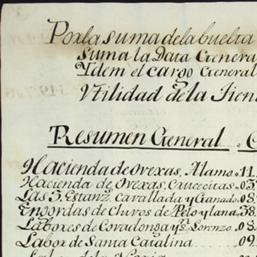 Por la suma de la buelta
Suma la Data General
Ydem el cargo General
Vtilidad de la Tien
Resumen General
Hacienda de Ovexas, Alamo 11
Hacienda de Ovexas, Crucecitas 03
Las 3 Estanz. cavallada y Ganado 08
Engordas de Chivos de Pelo y lana 38
Labores de Covadonga y Sn. Lorenzo 03
Labor de Santa Catalina 09